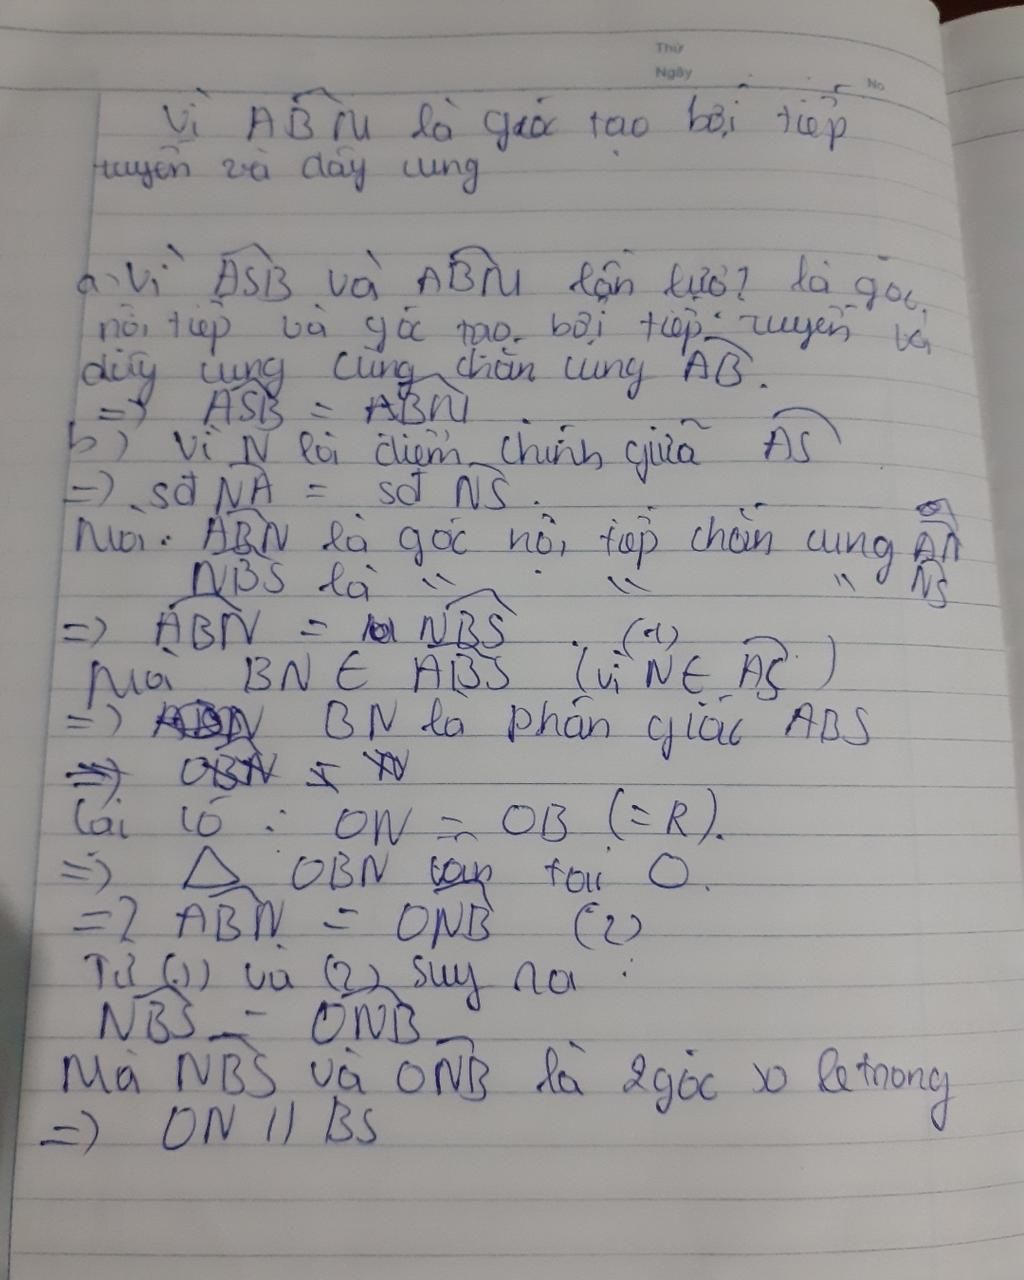 Thứ
Ngày
No
Vì ABN là góc tạo bởi tiếp
tuyến và dây cung
a. Vì ASB và ABM lần lượt là góc
nội tiếp và góc tạo bởi tiếp tuyến và
dây cung cùng chắn cung AB.
=> ASB = ABM
b) Vì N là điểm chính giữa AS
=> sđ NA = sđ NS.
Mà. ABN là góc nội tiếp chắn cung AN
NBS là " " " NS
=> ABN = NBS. (1)
Mà BN ∈ ABS (vì N ∈ AS)
=> BN là phân giác ABS
Lại có: ON = OB (=R).
=> △ OBN cân tại O.
=> ABN = ONB (2)
Từ (1) và (2) suy ra:
NBS = ONB
Mà NBS và ONB là 2 góc so le trong
=> ON // BS